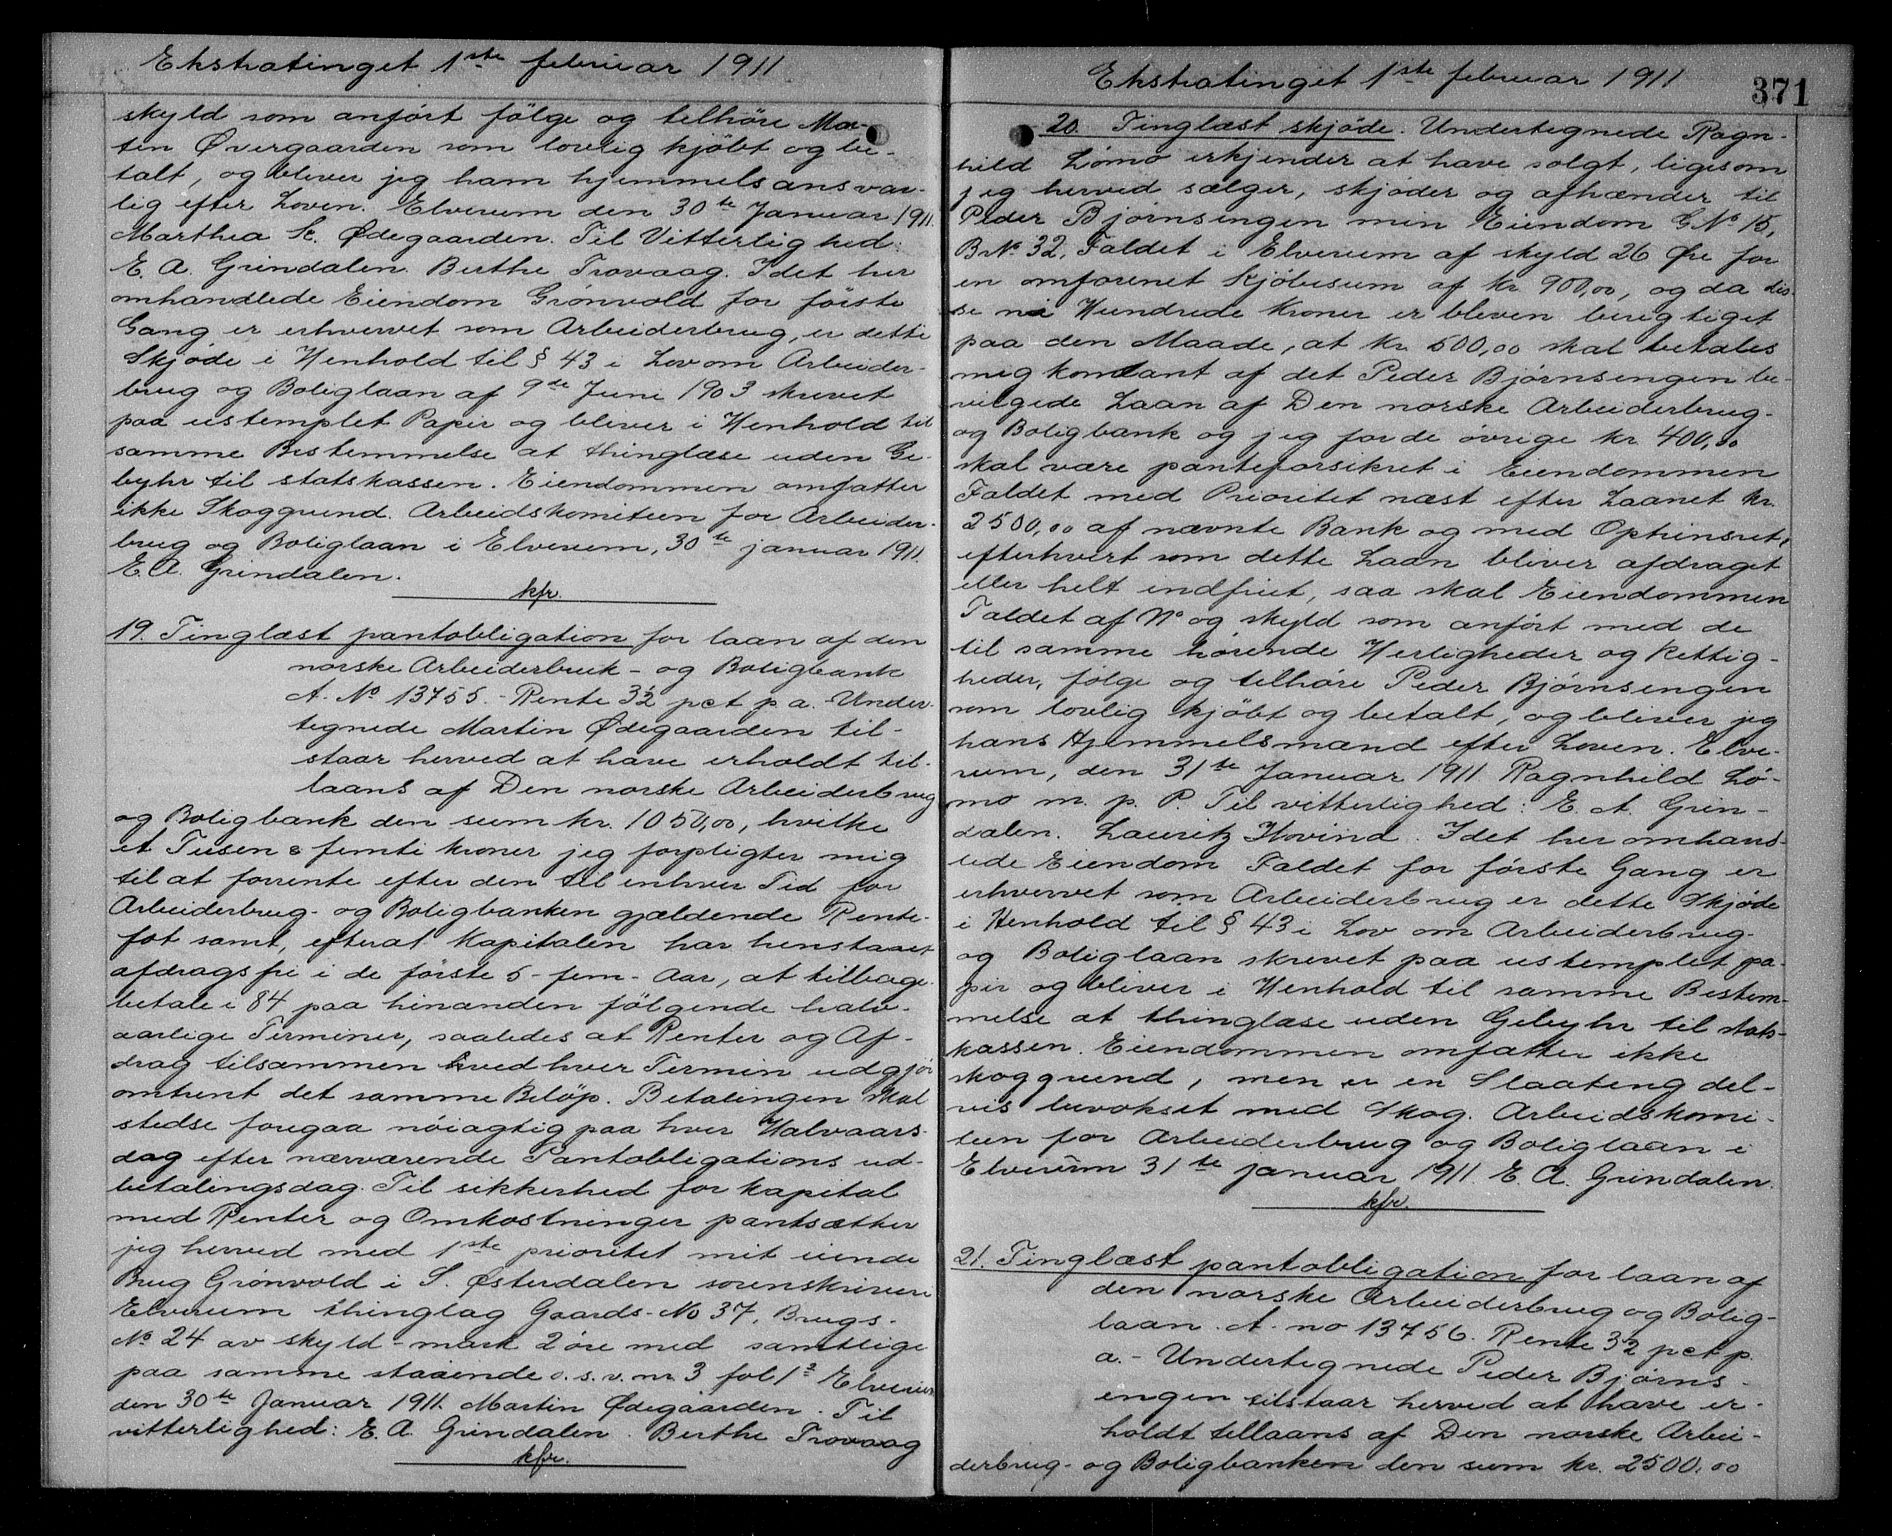 Ekstratinget 1ste februar 1911
skyld som anført følge og tilhøre Mar-
tin Øvergaarden som lovlig kjøbt og be-
talt, og bliver jeg ham hjemmelsansvar-
lig efter Loven. Elverum den 30te Januar 1911.
Marthea K. Ødegaarden. Til Vitterlighed:
E. A. Grindalen. Berthe Trovaag. Idet her
omhandlede Eiendom Grønvold for første
Gang er erhvervet som Arbeiderbrug, er dette
Skjøde i Henhold til § 43 i Lov om Arbeider-
brug og Boliglaan af 9de Juni 1903 skrevet
paa ustemplet Papir og bliver i Henhold til
samme Bestemmelse at thinglæse uden Ge-
byhr til statskassen. Eiendommen omfatter
ikke Skoggrund. Arbeidskomiteen for Arbeider-
brug og Boliglaan i Elverum, 30te januar 1911.
E. A. Grindalen.
kfr.
19. Tinglæst pantobligation for laan af den
norske Arbeiderbruk- og Boligbank
A. No 13755 - Rente 3½ pct p a. Under-
tegnede Martin Ødegaarden til-
staar herved at have erholdt til-
laans af Den norske Arbeiderbrug
og Boligbank den sum kr. 1050,00, hvilke
et Tusen & femti kroner jeg forpligter mig
til at forrente efter den til enhver Tid for
Arbeiderbrug- og Boligbanken gjældende Rente-
fot samt, efterat Kapitalen har henstaaet
afdragsfri i de første 5 - fem - Aar, at tilbage-
betale i 84 paa hinanden følgende halv-
aarlige Terminer, saaledes at Renter og Af-
drag tilsammen hved hver Termin udgjør
omtrent det samme Beløp. Betalingen skal
stedse foregaa nøiagtig paa hver Halvaars-
dag efter nærværende Pantobligations ud-
betalingsdag. Til sikkerhed for kapital
med Renter og Omkostninger pantsætter
jeg herved med 1ste prioritet mit eiende
Brug Grønvold i S. Østerdalen sorenskriveri
Elverum thinglag Gaards-No 37, Brugs-
No 24 av skyld - mark 2 øre med samtlige
paa samme staaende o. s. v. nr 3 fol 1 Elverum
den 30te Januar 1911. Martin Ødegaarden. Til
vitterlighed: E. A. Grindalen. Berthe Trovaag
kfr.
Ekstratinget 1ste februar 1911
371
20. Tinglæst skjøde. Undertegnede Ragn-
hild Lømo erkjender at have solgt, ligesom
jeg herved sælger, skjøder og afhænder til
Peder Bjørnsengen min Eiendom G No 15,
B No 32, Faldet i Elverum af skyld 26 Øre for
en omforenet Kjøbesum af kr 900,00, og da dis-
se ni Hundrede Kroner er bleven berigtiget
paa den Maade, at kr. 500,00 skal betales
mig kontant af det Peder Bjørnsengen be-
vilgede Laan af Den norske Arbeiderbrug-
og Boligbank og jeg for de øvrige kr 400,00
skal være panteforsikret i Eiendommen
Faldet med Prioritet næst efter Laanet kr.
2500,00 af nævnte Bank og med Optrinsret,
efterhvert som dette Laan bliver afdraget
eller helt indfriet, saa skal Eiendommen
Faldet af No og skyld som anført med de
til samme hørende Herligheder og Rettig-
heder, følge og tilhøre Peder Bjørnsengen
som lovlig kjøbt og betalt, og bliver jeg
hans Hjemmelsmand efter Loven. Elve-
rum, den 31te Januar 1911 Ragnhild Lø-
mo m. p. P. Til vitterlighed: E. A. Grin-
dalen. Lauritz Hovind. Idet her omhand-
lede Eiendom Faldet for første Gang er
erhvervet som Arbeiderbrug er dette Skjøde
i Henhold til § 43 i Lov om Arbeiderbrug-
og Boliglaan skrevet paa ustemplet pa-
pir og bliver i Henhold til samme Bestem-
melse at thinglæse uden Gebyhr til stats-
kassen. Eiendommen omfatter ikke
skoggrund, men er en Slaateng del-
vis bevokset med Skog. Arbeidskomi-
teen for Arbeiderbrug og Boliglaan i
Elverum 31te januar 1911. E. A. Grindalen.
kfr.
21. Tinglæst pantobligation for laan af
den norske Arbeiderbrug og Bolig-
laan. A. no 13756. Rente 3½ pct p.
a. - Undertegnede Peder Bjørns-
engen tilstaar herved at have er-
holdt tillaans af Den norske Arbei-
derbrug- og Boligbanken den sum kr. 2500,00